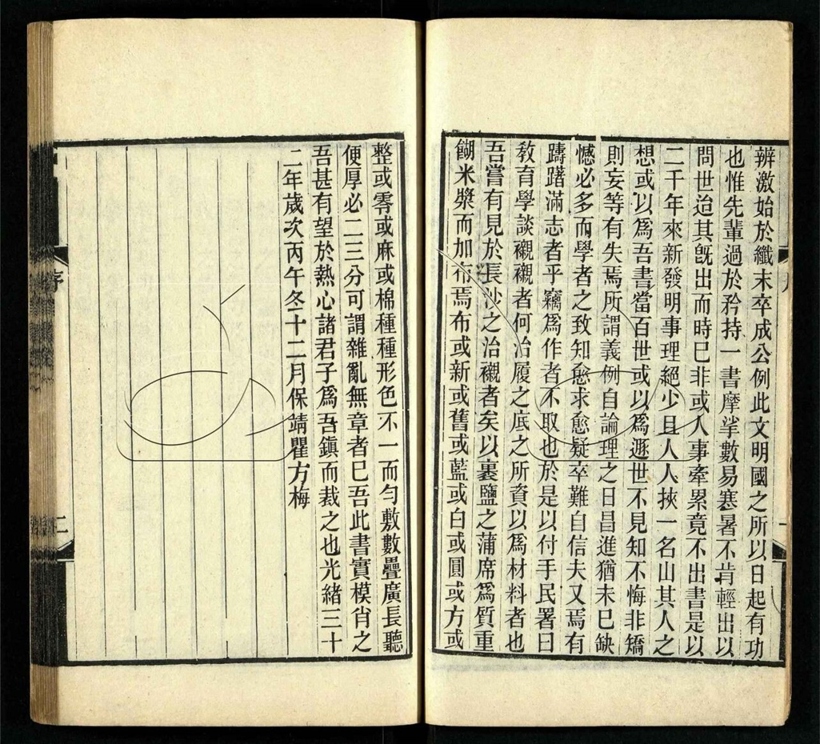 辨激始於纖末卒成公例此文明國之所以日起有功
也惟先輩過於矜持一書摩挲數易寒暑不肯輕出以
問世迨其旣出而時已非或人事牽累竟不出書是以
二千年來新發明事理絕少且人人挾一名山其人之
想或以爲吾書當百世或以爲遯世不見知不悔非矯
則妄等有失焉所謂義例自論理之日昌進猶未已缺
憾必多而學者之致知愈求愈疑卒難自信夫又焉有
躊躇滿志者乎竊爲作者不取也於是以付手民署曰
敎育學談襯襯者何治履之底之所資以爲材料者也
吾嘗有見於長沙之治襯者矣以裹鹽之蒲席爲質重
餬米漿而加布焉布或新或舊或藍或白或圓或方或
整或零或麻或棉種種形色不一而勻敷數疊廣長聽
便厚必二三分可謂雜亂無章者已吾此書實模肖之
吾甚有望於熱心諸君子爲吾鎭而裁之也光緒三十
二年歲次丙午冬十二月保靖瞿方梅
序
二